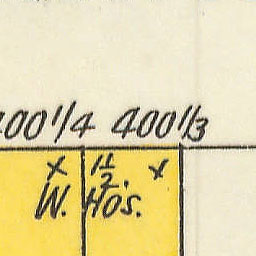 400 1/4 400 1/3
x 1 1/2 . x
W. Hos.